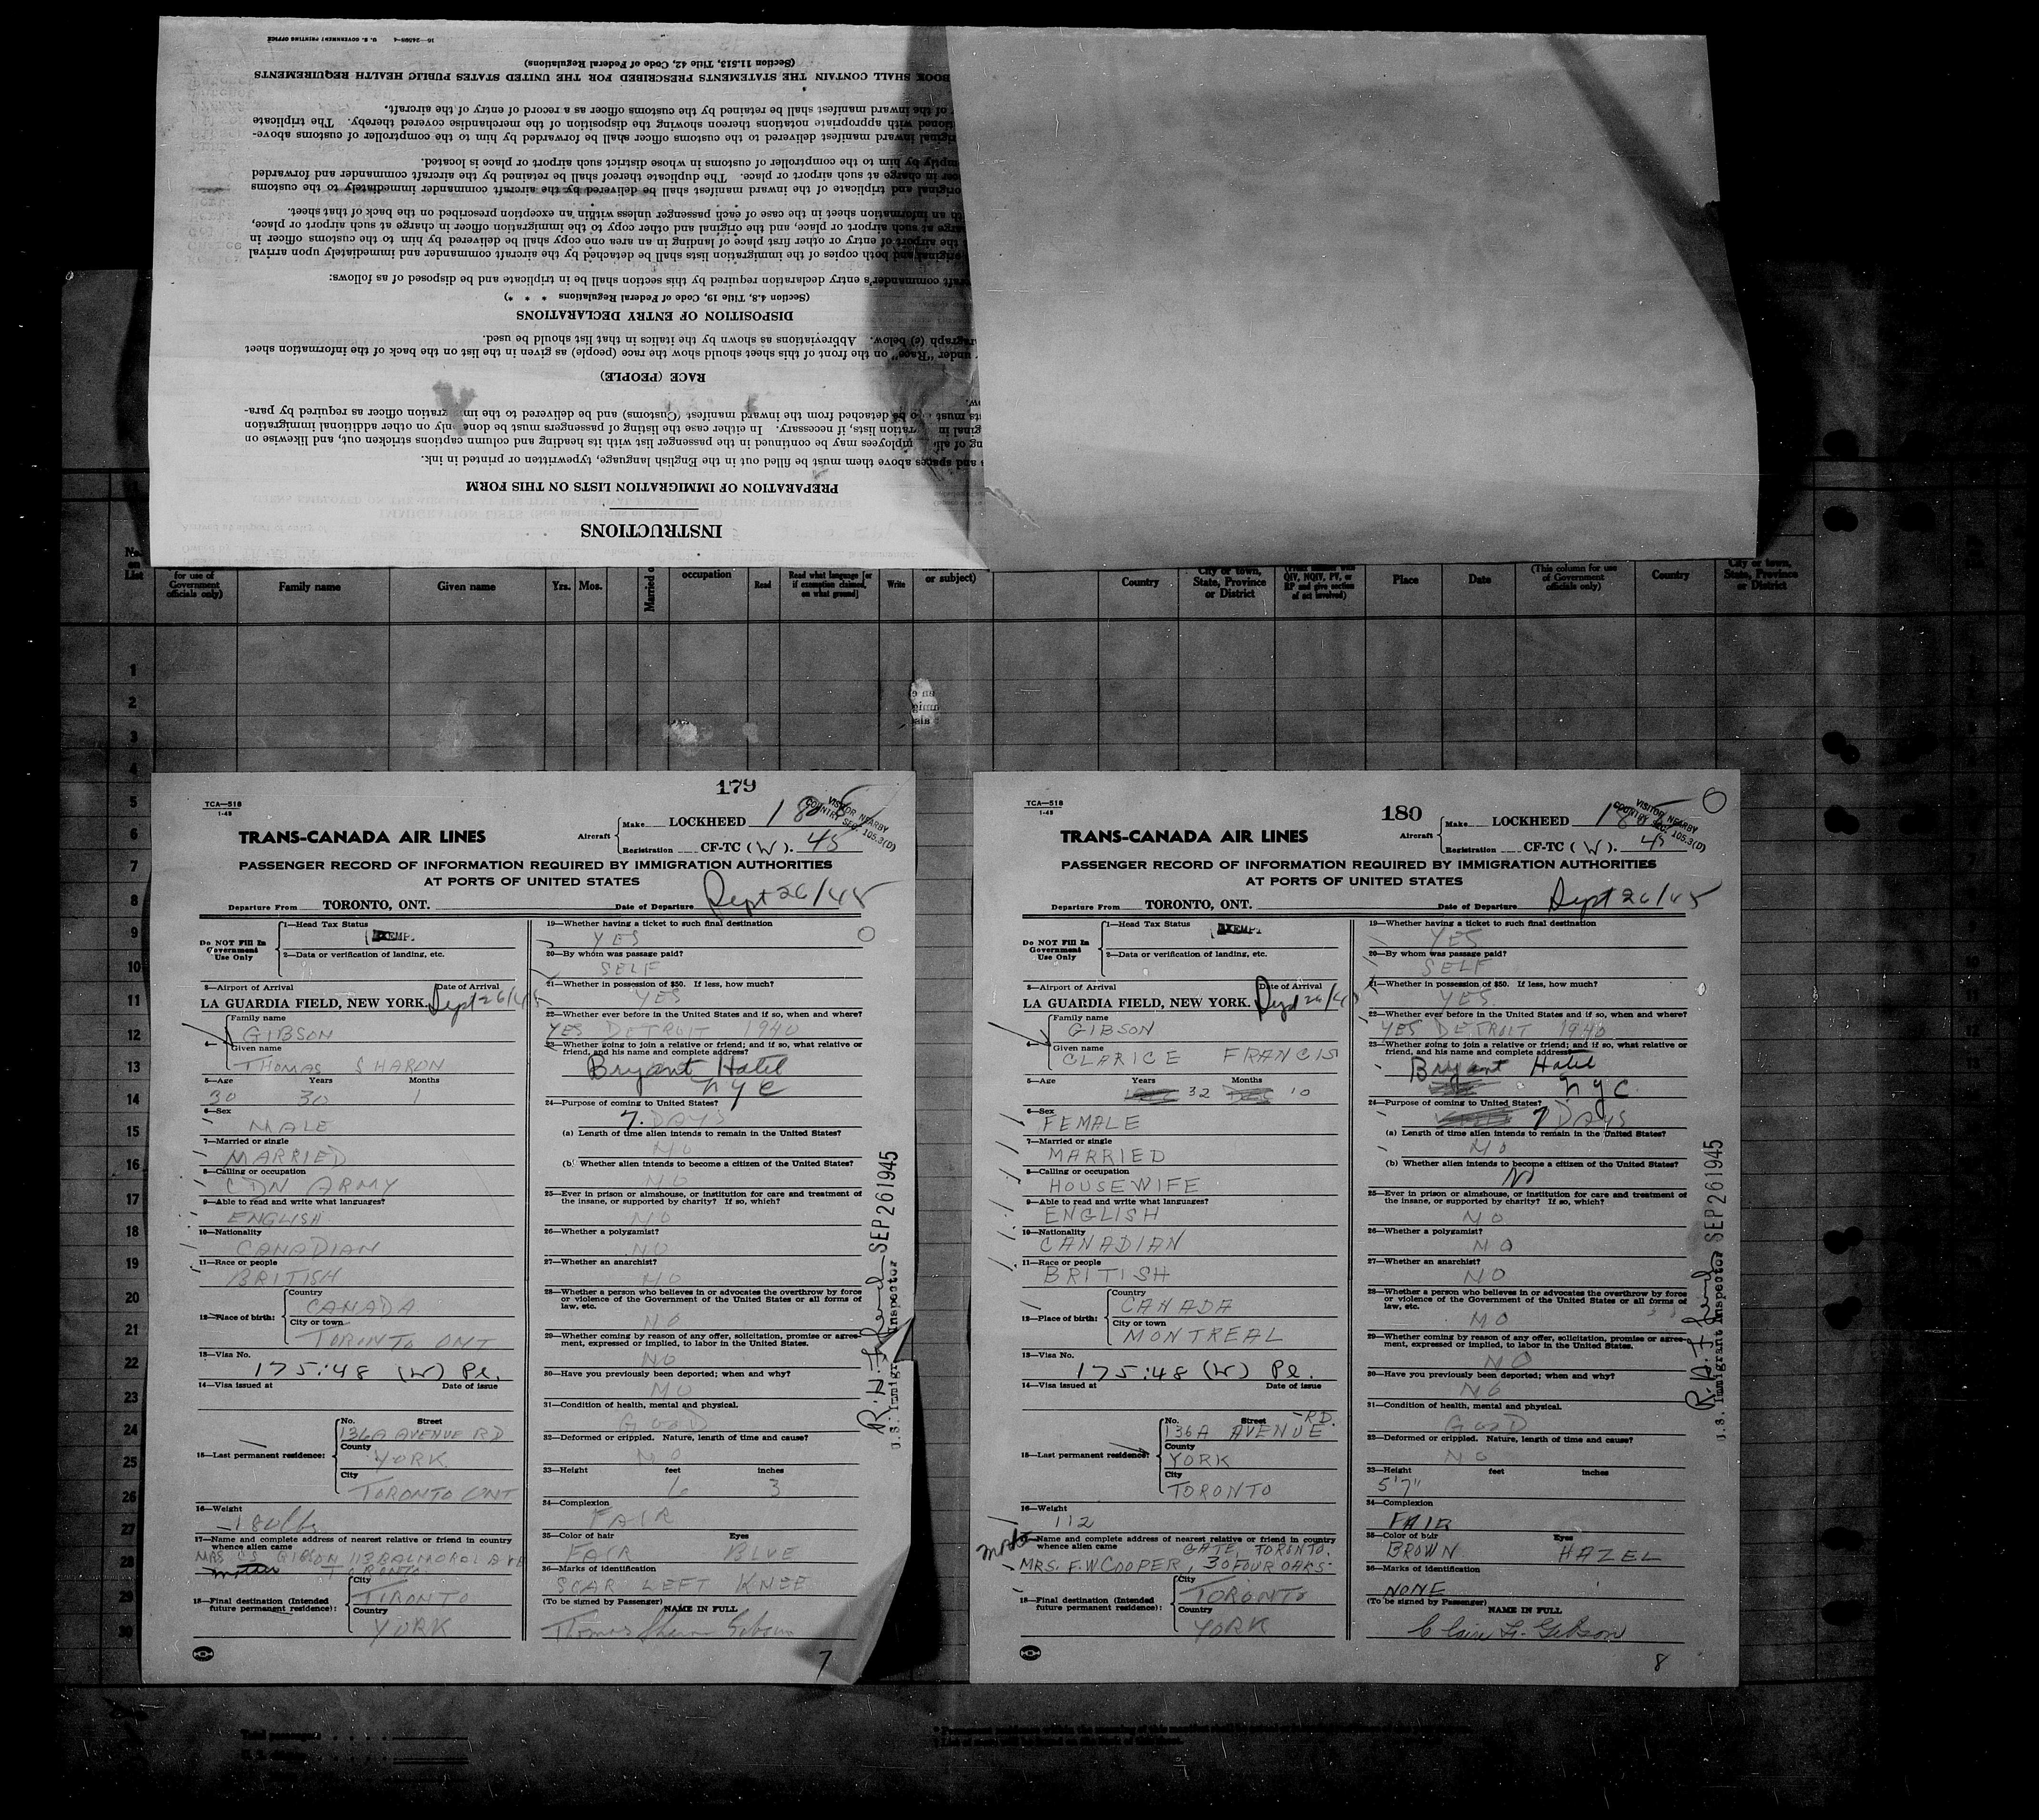 INSTRUCTIONS
PREPARATION OF IMMIGRATION LISTS ON THIS FORM
s and spaces above them must be filled out in the English language, typewritten or printed in ink.
ployees may be continued in the passenger list with its heading and column captions stricken out, and likewise on
ration lists, if necessary. In either case the listing of passengers must be done only on other additional immigration
must be detached from the inward manifest (Customs) and be delivered to the immigration officer as required by para-
RACE (PEOPLE)
under "Race" on the front of this sheet should show the race (people) as given in the list on the back of the information sheet
ragraph (e) below. Abbreviations as shown by the italics in that list should be used.
DISPOSITION OF ENTRY DECLARATIONS
(Section 4.8, Title 19, Code of Federal Regulations * * *)
raft commander's entry declaration required by this section shall be in triplicate and be disposed of as follows:
original and both copies of the immigration lists shall be detached by the aircraft commander and immediately upon arrival
the airport of entry or other first place of landing in an area one copy shall be delivered by him to the customs officer in
arge at such airport or place, and the original and other copy to the immigration officer in charge at such airport or place,
th an information sheet in the case of each passenger unless within an exception prescribed on the back of that sheet.
original and triplicate of the inward manifest shall be delivered by the aircraft commander immediately to the customs
cer in charge at such airport or place. The duplicate thereof shall be retained by the aircraft commander and forwarded
mptly by him to the comptroller of customs in whose district such airport or place is located.
riginal inward manifest delivered to the customs officer shall be forwarded by him to the comptroller of customs above-
tioned with appropriate notations thereon showing the disposition of the merchandise covered thereby. The triplicate
of the inward manifest shall be retained by the customs officer as a record of entry of the aircraft.
BOOK SHALL CONTAIN THE STATEMENTS PRESCRIBED FOR THE UNITED STATES PUBLIC HEALTH REQUIREMENTS
(Section 11.513, Title 42, Code of Federal Regulations)
16—24598-4 U. S. GOVERNMENT PRINTING OFFICE
No. on List
for use of Government officials only)
Family name
Given name
Yrs. Mos.
occupation
Read
Read what language [or if exemption claimed, on what ground]
Write
or subject)
Country
City or town, State, Province or District
QIV, NQIV, PV, or RP and give section of act involved)
Place
Date
(This column for use of Government officials only)
Country
City or town, State, Province or District
1
2
3
4
5
6
7
8
9
10
11
12
13
14
15
16
17
18
19
20
21
22
23
24
25
26
27
28
29
30
179
TCA—518
1-45
VISITOR NEARBY
COUNTRY SEC. 105.3(D)
TRANS-CANADA AIR LINES
Aircraft
Make LOCKHEED 18
Registration CF-TC (W). 45
PASSENGER RECORD OF INFORMATION REQUIRED BY IMMIGRATION AUTHORITIES
AT PORTS OF UNITED STATES
Departure From TORONTO, ONT. Date of Departure Sept 26/45
Do NOT Fill In Government Use Only
1—Head Tax Status
EXEMP.
2—Data or verification of landing, etc.
3—Airport of Arrival Date of Arrival
LA GUARDIA FIELD, NEW YORK. Sept 26/45
4—
Family name
GIBSON
Given name
THOMAS SHARON
5—Age Years Months
30 30 1
6—Sex
MALE
7—Married or single
MARRIED
8—Calling or occupation
CDN ARMY
9—Able to read and write what languages?
ENGLISH
10—Nationality
CANADIAN
11—Race or people
BRITISH
12—Place of birth:
Country
CANADA
City or town
TORONTO ONT
13—Visa No.
175:48 (W) Pl.
14—Visa issued at Date of issue
15—Last permanent residence:
No. Street
136A AVENUE RD
County
YORK
City
TORONTO ONT
16—Weight
180 lbs
17—Name and complete address of nearest relative or friend in country whence alien came
MRS CS GIBSON 113 BALMORAL AVE
mother TORONTO
18—Final destination (Intended future permanent residence):
City
TORONTO
Country
YORK
19—Whether having a ticket to such final destination
YES
20—By whom was passage paid?
SELF
21—Whether in possession of $50. If less, how much?
YES
22—Whether ever before in the United States and if so, when and where?
YES DETROIT 1940
23—Whether going to join a relative or friend; and if so, what relative or friend, and his name and complete address?
Bryant Hotel
NYC
24—Purpose of coming to United States?
7 DAYS
(a) Length of time alien intends to remain in the United States?
NO
(b) Whether alien intends to become a citizen of the United States?
NO
25—Ever in prison or almshouse, or institution for care and treatment of the insane, or supported by charity? If so, which?
NO
26—Whether a polygamist?
NO
27—Whether an anarchist?
NO
28—Whether a person who believes in or advocates the overthrow by force or violence of the Government of the United States or all forms of law, etc.
NO
29—Whether coming by reason of any offer, solicitation, promise or agreement, expressed or implied, to labor in the United States.
NO
30—Have you previously been deported; when and why?
NO
31—Condition of health, mental and physical.
GOOD
32—Deformed or crippled. Nature, length of time and cause?
NO
33—Height feet inches
6 3
34—Complexion
FAIR
35—Color of hair Eyes
FAIR BLUE
36—Marks of identification
SCAR LEFT KNEE
(To be signed by Passenger) NAME IN FULL
Thomas Sharon Gibson
7
SEP 26 1945
U.S. Immigr Inspector
180
TCA—518
1-45
VISITOR NEARBY
COUNTRY SEC. 105.3(D)
TRANS-CANADA AIR LINES
Aircraft
Make LOCKHEED 18
Registration CF-TC (W). 45
PASSENGER RECORD OF INFORMATION REQUIRED BY IMMIGRATION AUTHORITIES
AT PORTS OF UNITED STATES
Departure From TORONTO, ONT. Date of Departure Sept 26/45
Do NOT Fill In Government Use Only
1—Head Tax Status
EXEMP.
2—Data or verification of landing, etc.
3—Airport of Arrival Date of Arrival
LA GUARDIA FIELD, NEW YORK. Sept 26/45
4—
Family name
GIBSON
Given name
CLARICE FRANCIS
5—Age Years Months
32 10
6—Sex
FEMALE
7—Married or single
MARRIED
8—Calling or occupation
HOUSEWIFE
9—Able to read and write what languages?
ENGLISH
10—Nationality
CANADIAN
11—Race or people
BRITISH
12—Place of birth:
Country
CANADA
City or town
MONTREAL
13—Visa No.
175:48 (W) Pl.
14—Visa issued at Date of issue
15—Last permanent residence:
No. Street
136A AVENUE RD.
County
YORK
City
TORONTO
16—Weight
112
Name and complete address of nearest relative or friend in country whence alien came
GATE, TORONTO.
MRS. F.W COOPER, 30 FOUR OAKS
18—Final destination (Intended future permanent residence):
City
TORONTO
Country
YORK
19—Whether having a ticket to such final destination
YES
20—By whom was passage paid?
SELF
21—Whether in possession of $50. If less, how much?
YES.
22—Whether ever before in the United States and if so, when and where?
YES DETROIT 1940
23—Whether going to join a relative or friend; and if so, what relative or friend, and his name and complete address?
Bryant Hotel
NYC.
24—Purpose of coming to United States?
7 DAYS
(a) Length of time alien intends to remain in the United States?
NO
(b) Whether alien intends to become a citizen of the United States?
No
25—Ever in prison or almshouse, or institution for care and treatment of the insane, or supported by charity? If so, which?
NO
26—Whether a polygamist?
NO
27—Whether an anarchist?
NO
28—Whether a person who believes in or advocates the overthrow by force or violence of the Government of the United States or all forms of law, etc.
NO
29—Whether coming by reason of any offer, solicitation, promise or agreement, expressed or implied, to labor in the United States.
NO
30—Have you previously been deported; when and why?
NO
31—Condition of health, mental and physical.
GOOD
32—Deformed or crippled. Nature, length of time and cause?
NO
33—Height feet inches
5'7"
34—Complexion
FAIR
35—Color of hair Eyes
BROWN HAZEL
36—Marks of identification
NONE
(To be signed by Passenger) NAME IN FULL
Claire F. Gibson
8
SEP 26 1945
U.S. Immigrant Inspector
Total passengers